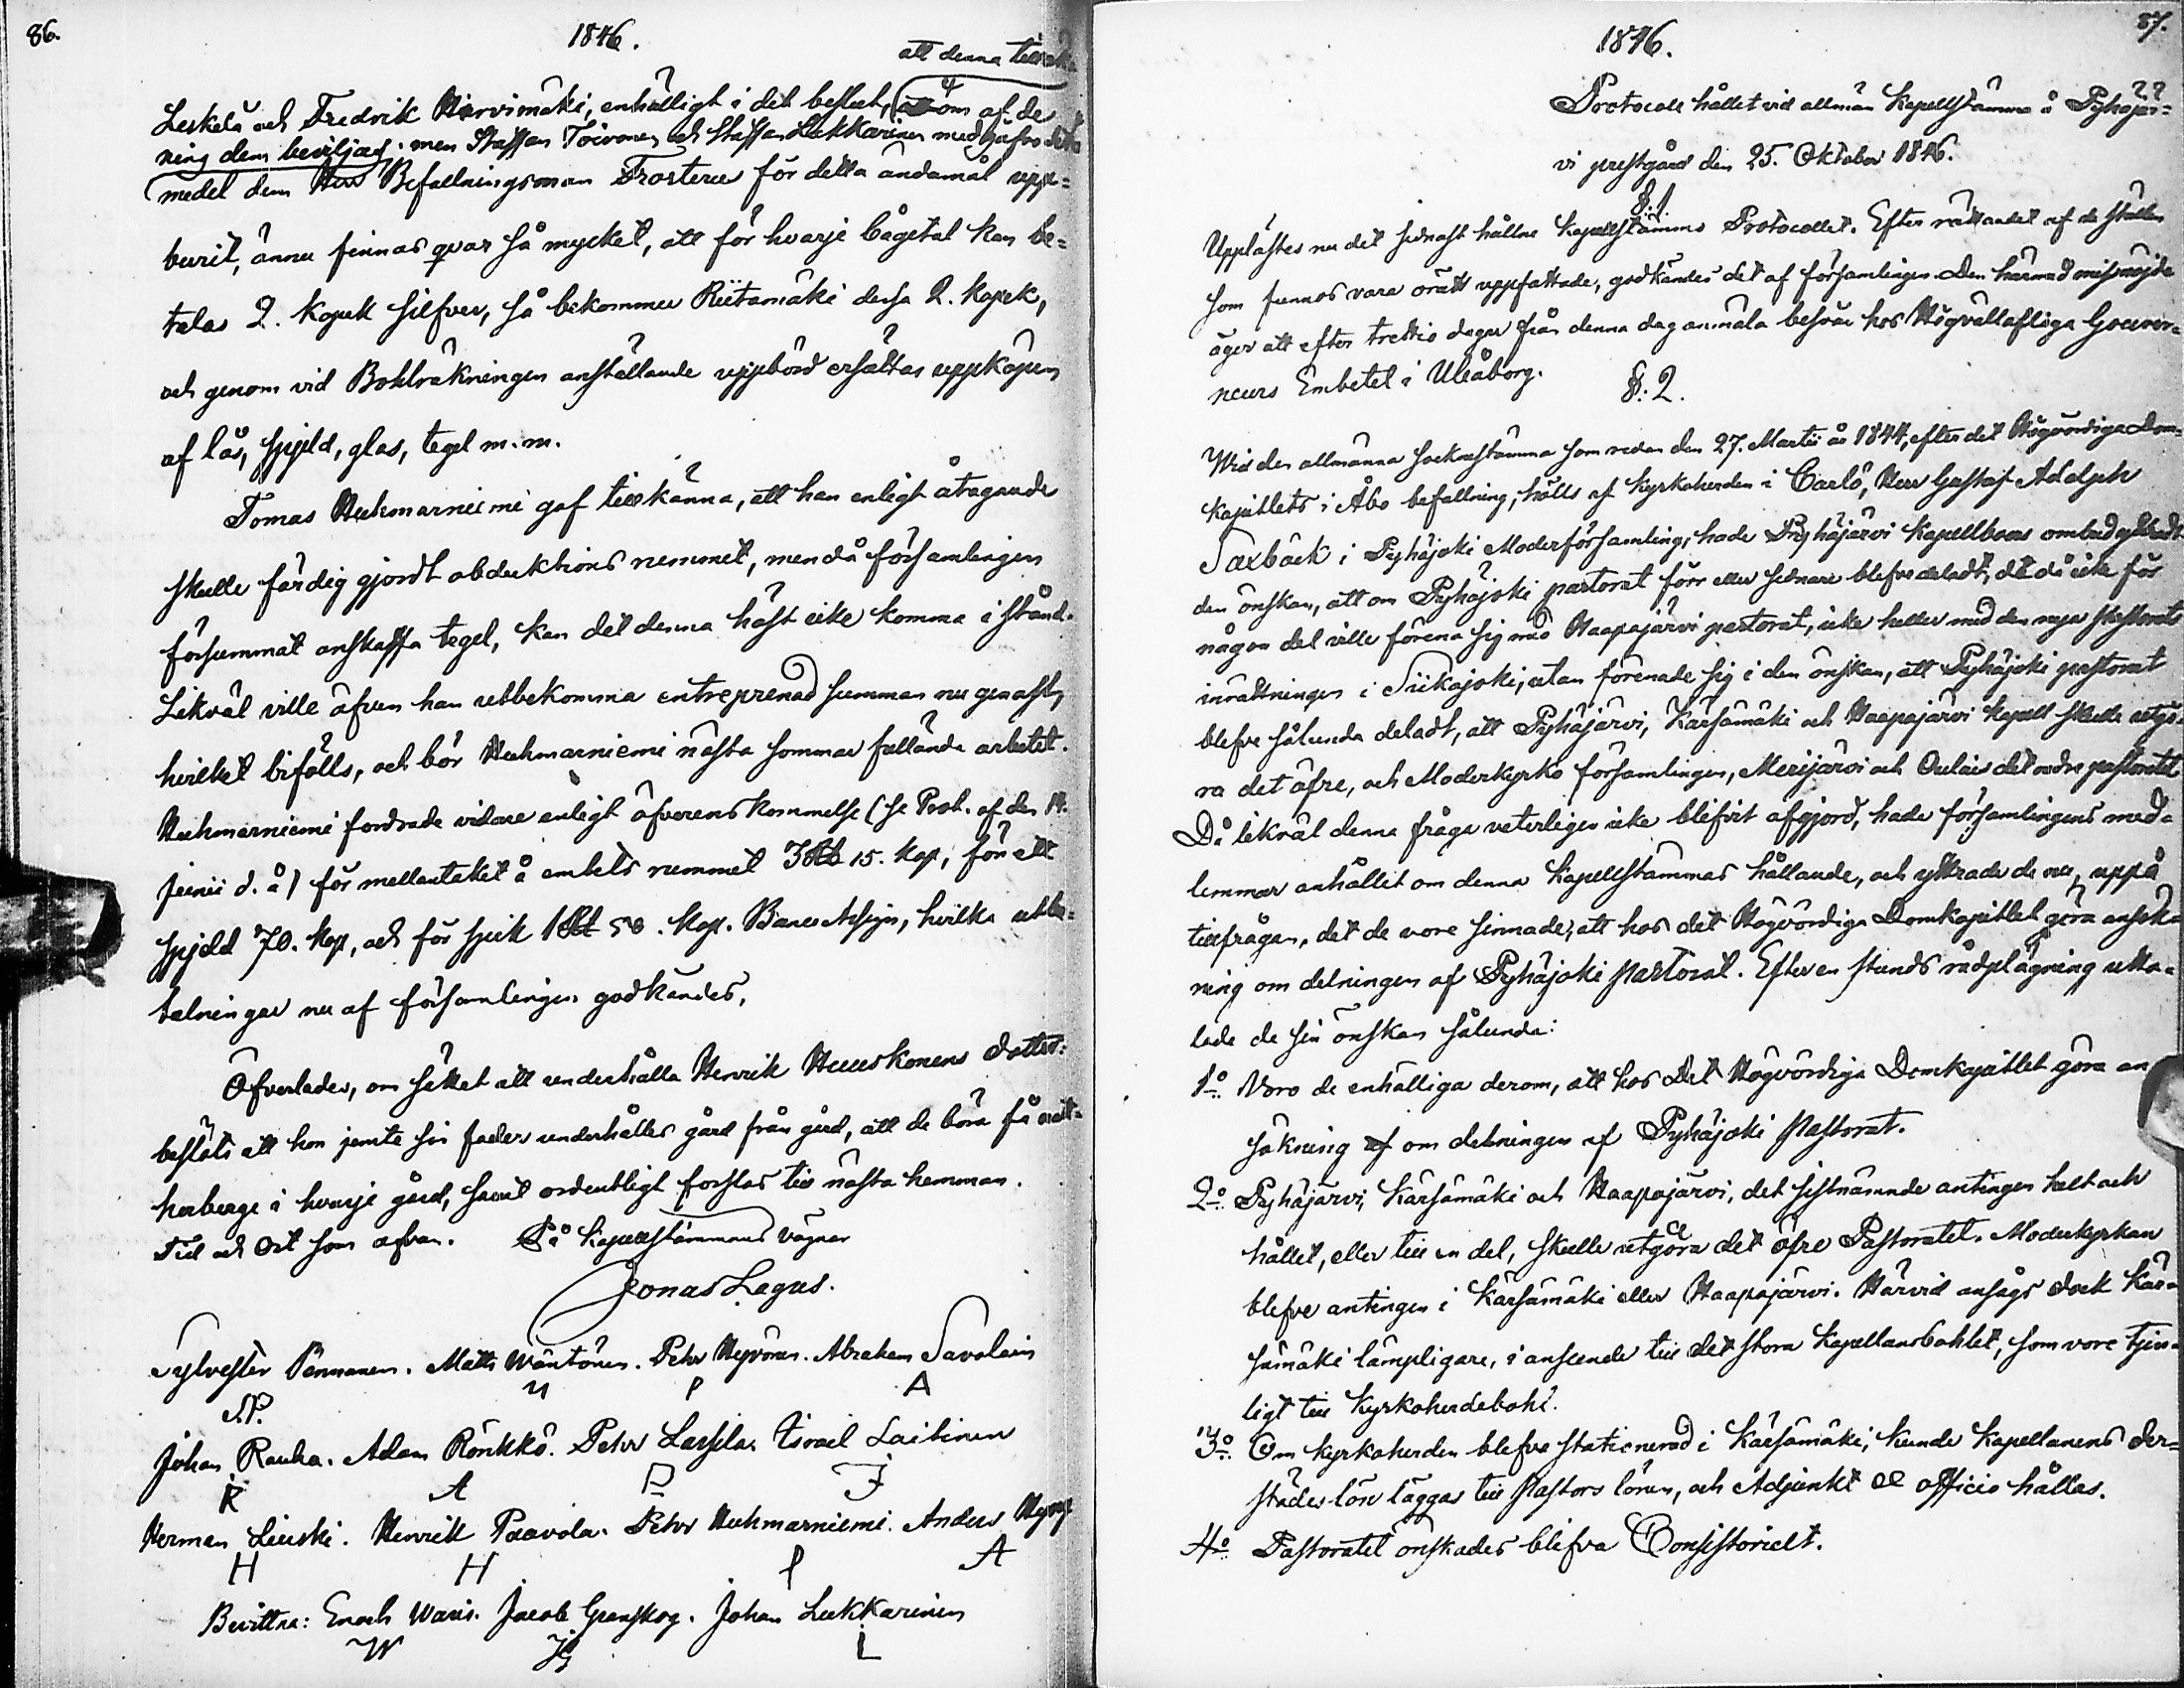 86.
1846.
att denna
Leskelä och Fredrik Hirvimäki, enhälligt i det beslut, om af de
ning dem beviljas; men Staffan Toivonen och Staffan Lukkarinen medgåfvo
medel dem Herr Befallningsman Frosterus för detta ändamål upp=
burit, ännu finnas qvar så mycket, att för hvarje bågetal kan be=
talas 2. kopek silfver, så bekommer Riitamäki dessa 2. kopek,
och genom vid Bohlräkningen anställande uppbörd ersättas uppköpen
af lås, spjeld, glas, tegel m. m.
Tomas Huhmarniemi gaf tillkänna, att han enligt åtagande
skulle färdig gjordt obduktions rummet, men då församlingen
försummat anskaffa tegel, kan det denna höst icke komma i stånd.
Likväl ville äfven han utbekomma entreprenad summan nu genast,
hvilket bifölls, och bör Huhmarniemi nästa sommar fullända arbetet.
Huhmarniemi fordrade vidare enligt öfverenskommelse (se Prot. af den 14.
Junii d. å) för mellantaket å embets rummet 3 Rb 15. kop, för ett
spjeld 70. kop, och för spik 1 Rb 50. kop. Banco Assign, hvilka utbe=
talningar nu af församlingen godkändes.
Öfverlades, om sättet att underhålla Henrik Huuskonens dotter:
beslöts att hon jemte sin fader underhålles gård från gård, att de böra få natt=
herberge i hvarje gård, samt ordentligt forslas till nästa hemman.
Tid och Ort som ofvan. På Kapellstämmans vägnar
Jonas Lagus.
Sylvester Pennanen. Matts Wäntönen. Petter Hyvönen. Abraham Savolain
S.P. M P A
Johan Rauha. Adam Rönkkö. Petter Lassila. Israel Laitinen
R A P I
Herman Liuski. Henrik Paavola. Petter Huhmarniemi. Anders
H H P A
Bevittna: Enoch Waris. Jacob Granskog. Johan Lukkarinen
W JG L
87.
1846.
Protocoll hållet vid allmän Kapellstämma å Pyhäjär=
vi prestgård den 25. Oktober 1846.
§. 1.
Upplästes nu det sednast hållne Kapellstämmo Protocollet. Efter rättandet af de ställen
som funnos vara orätt uppfattade, godkändes det af församlingen. Den härmed missnöjde
äger att efter trettio dagar från denna dag anmäla besvär hos Högvällofliga Gouver=
neurs Embetet i Uleåborg.
§. 2.
Wid den allmänna sockenstämma som redan den 27. Martii år 1844, efter det Högvördiga Dom=
kapitlets i Åbo befallning, hölls af Kyrkoherden i Carlö, Herr Gustaf Adolph
Saxbäck i Pyhäjoki Moderförsamling, hade Pyhäjärvi Kapellboers ombud yttradt
den önskan, att om Pyhäjoki pastorat förr eller sednare blefve deladt, det då icke för
någon del ville förena sig med Haapajärvi pastorat, icke heller med den nya Pastorats
inrättningen i Siikajoki, utan förenade sig i den önskan, att Pyhäjoki pastorat
blefve sålunda deladt, att Pyhäjärvi, Kärsämäki och Haapajärvi Kapell skulle utgö=
ra det öfre, och Moderkyrko församlingen, Merijärvi och Oulais det nedre pastoratet.
Då likväl denna fråga veterligen icke blifvit afgjord, hade församlingens med=
lemmar anhållit om denna Kapellstämmas hållande, och yttrade de nu, uppå
tillfrågan, det de vore sinnade, att hos det Högvördiga Domkapitlet göra ansök=
ning om delningen af Pyhäjoki Pastorat. Efter en stunds rådplägning utta=
lade de sin önskan sålunda:
1:o Voro de enhälliga derom, att hos Det Högvördiga Domkapitlet göra an
sökning om delningen af Pyhäjoki Pastorat.
2:o Pyhäjärvi, Kärsämäki och Haapajärvi, det sistnämnde antingen helt och
hållet, eller till en del, skulle utgöra det öfre Pastoratet. Moderkyrkan
blefve antingen i Kärsämäki eller Haapajärvi. Härvid ansågs dock Kär=
sämäki lämpligare, i anseende till det stora Kapellansbohlet, som vore tjen=
ligt till Kyrkoherdebohl.
3:o Om Kyrkoherden blefve stationerad i Kärsämäki, kunde Kapellanens der=
städes lön läggas till Pastors lönen, och Adjunkt ex officio hållas.
4:o Pastoratet önskades blifva Consistorielt.